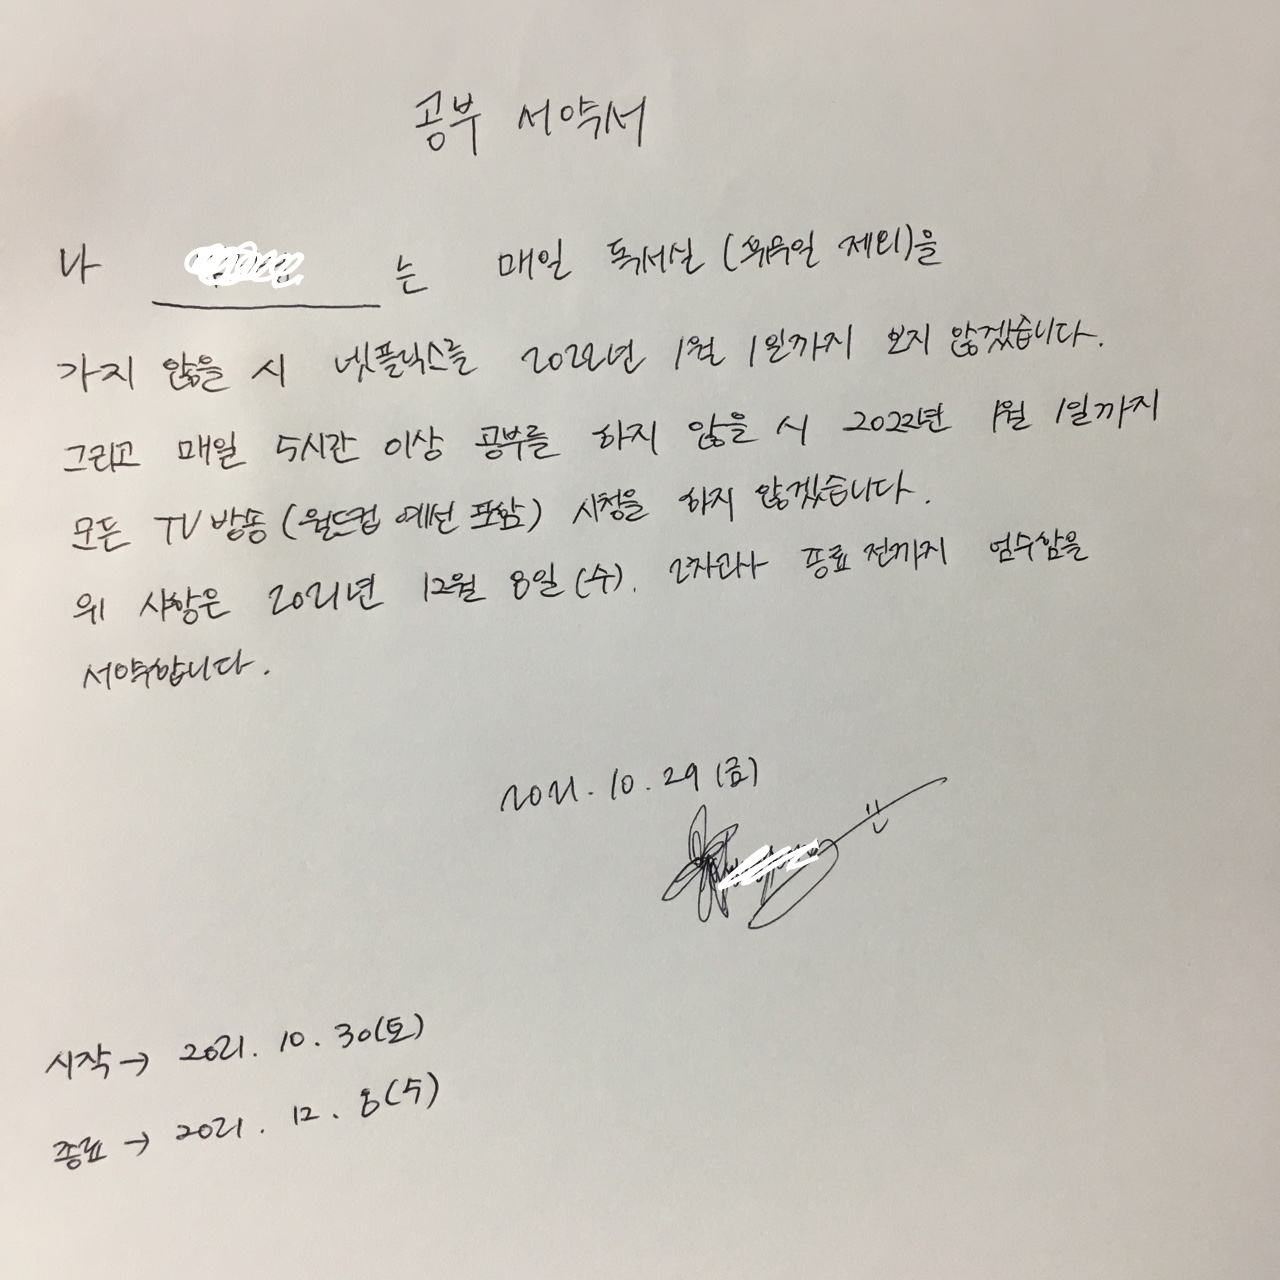 공부 서약서
나 는 매일 독서실 (휴무일 제외)을
가지 않을 시 넷플릭스를 2022년 1월 1일까지 보지 않겠습니다.
그리고 매일 5시간 이상 공부를 하지 않을 시 2022년 1월 1일까지
모든 TV방송 (월드컵 예선 포함) 시청을 하지 않겠습니다.
위 사항은 2021년 12월 8일(수). 2차과사 종료 전까지 엄수함을
서약합니다.
2021. 10. 29 (금)
시작→ 2021. 10. 30(토)
종료→ 2021. 12. 8(수)